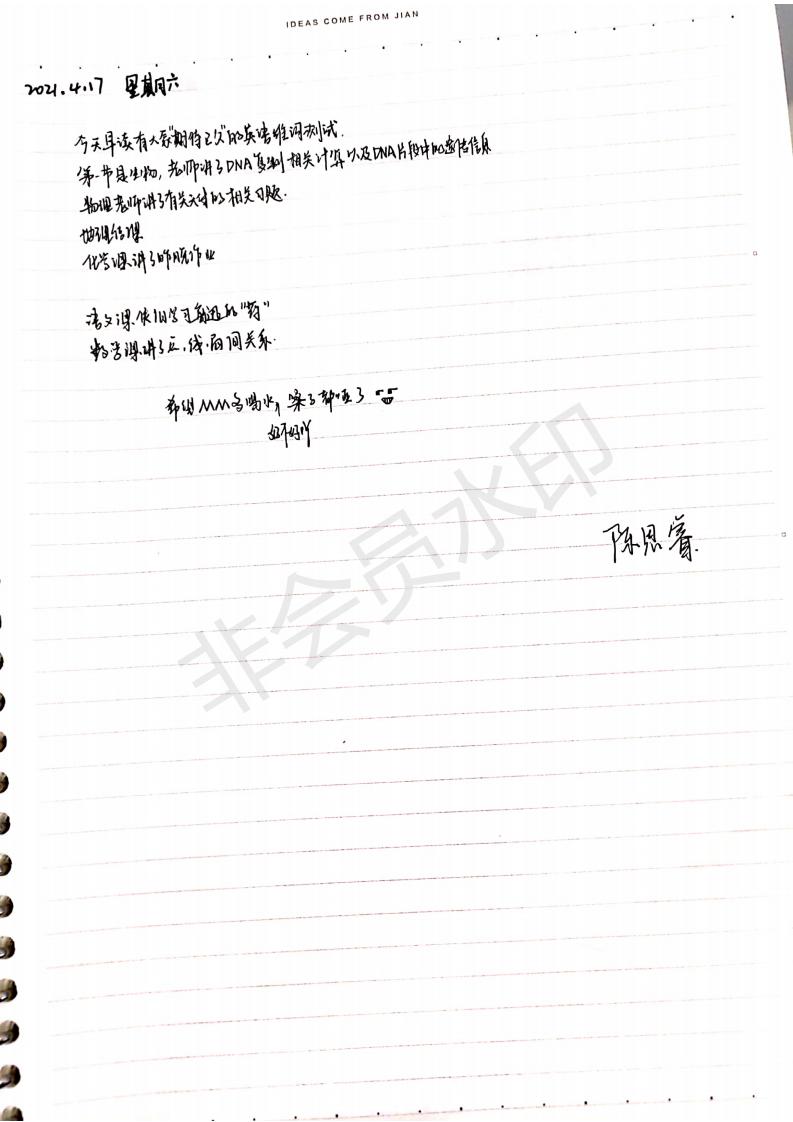 IDEAS COME FROM JIAN
2021.4.17 星期六
今天早读有大家"期待已久"的英语单词测试.
第一节是生物, 老师讲了DNA复制相关计算以及DNA片段中的遗传信息
物理老师讲了有关天体的相关习题.
地理结课
化学课讲了昨晚作业
语文课依旧学习鲁迅的"药"
数学课讲了点,线,面间关系.
希望MM多喝水, 嗓子都哑了
好不好吖
陈思睿.
非会员水印